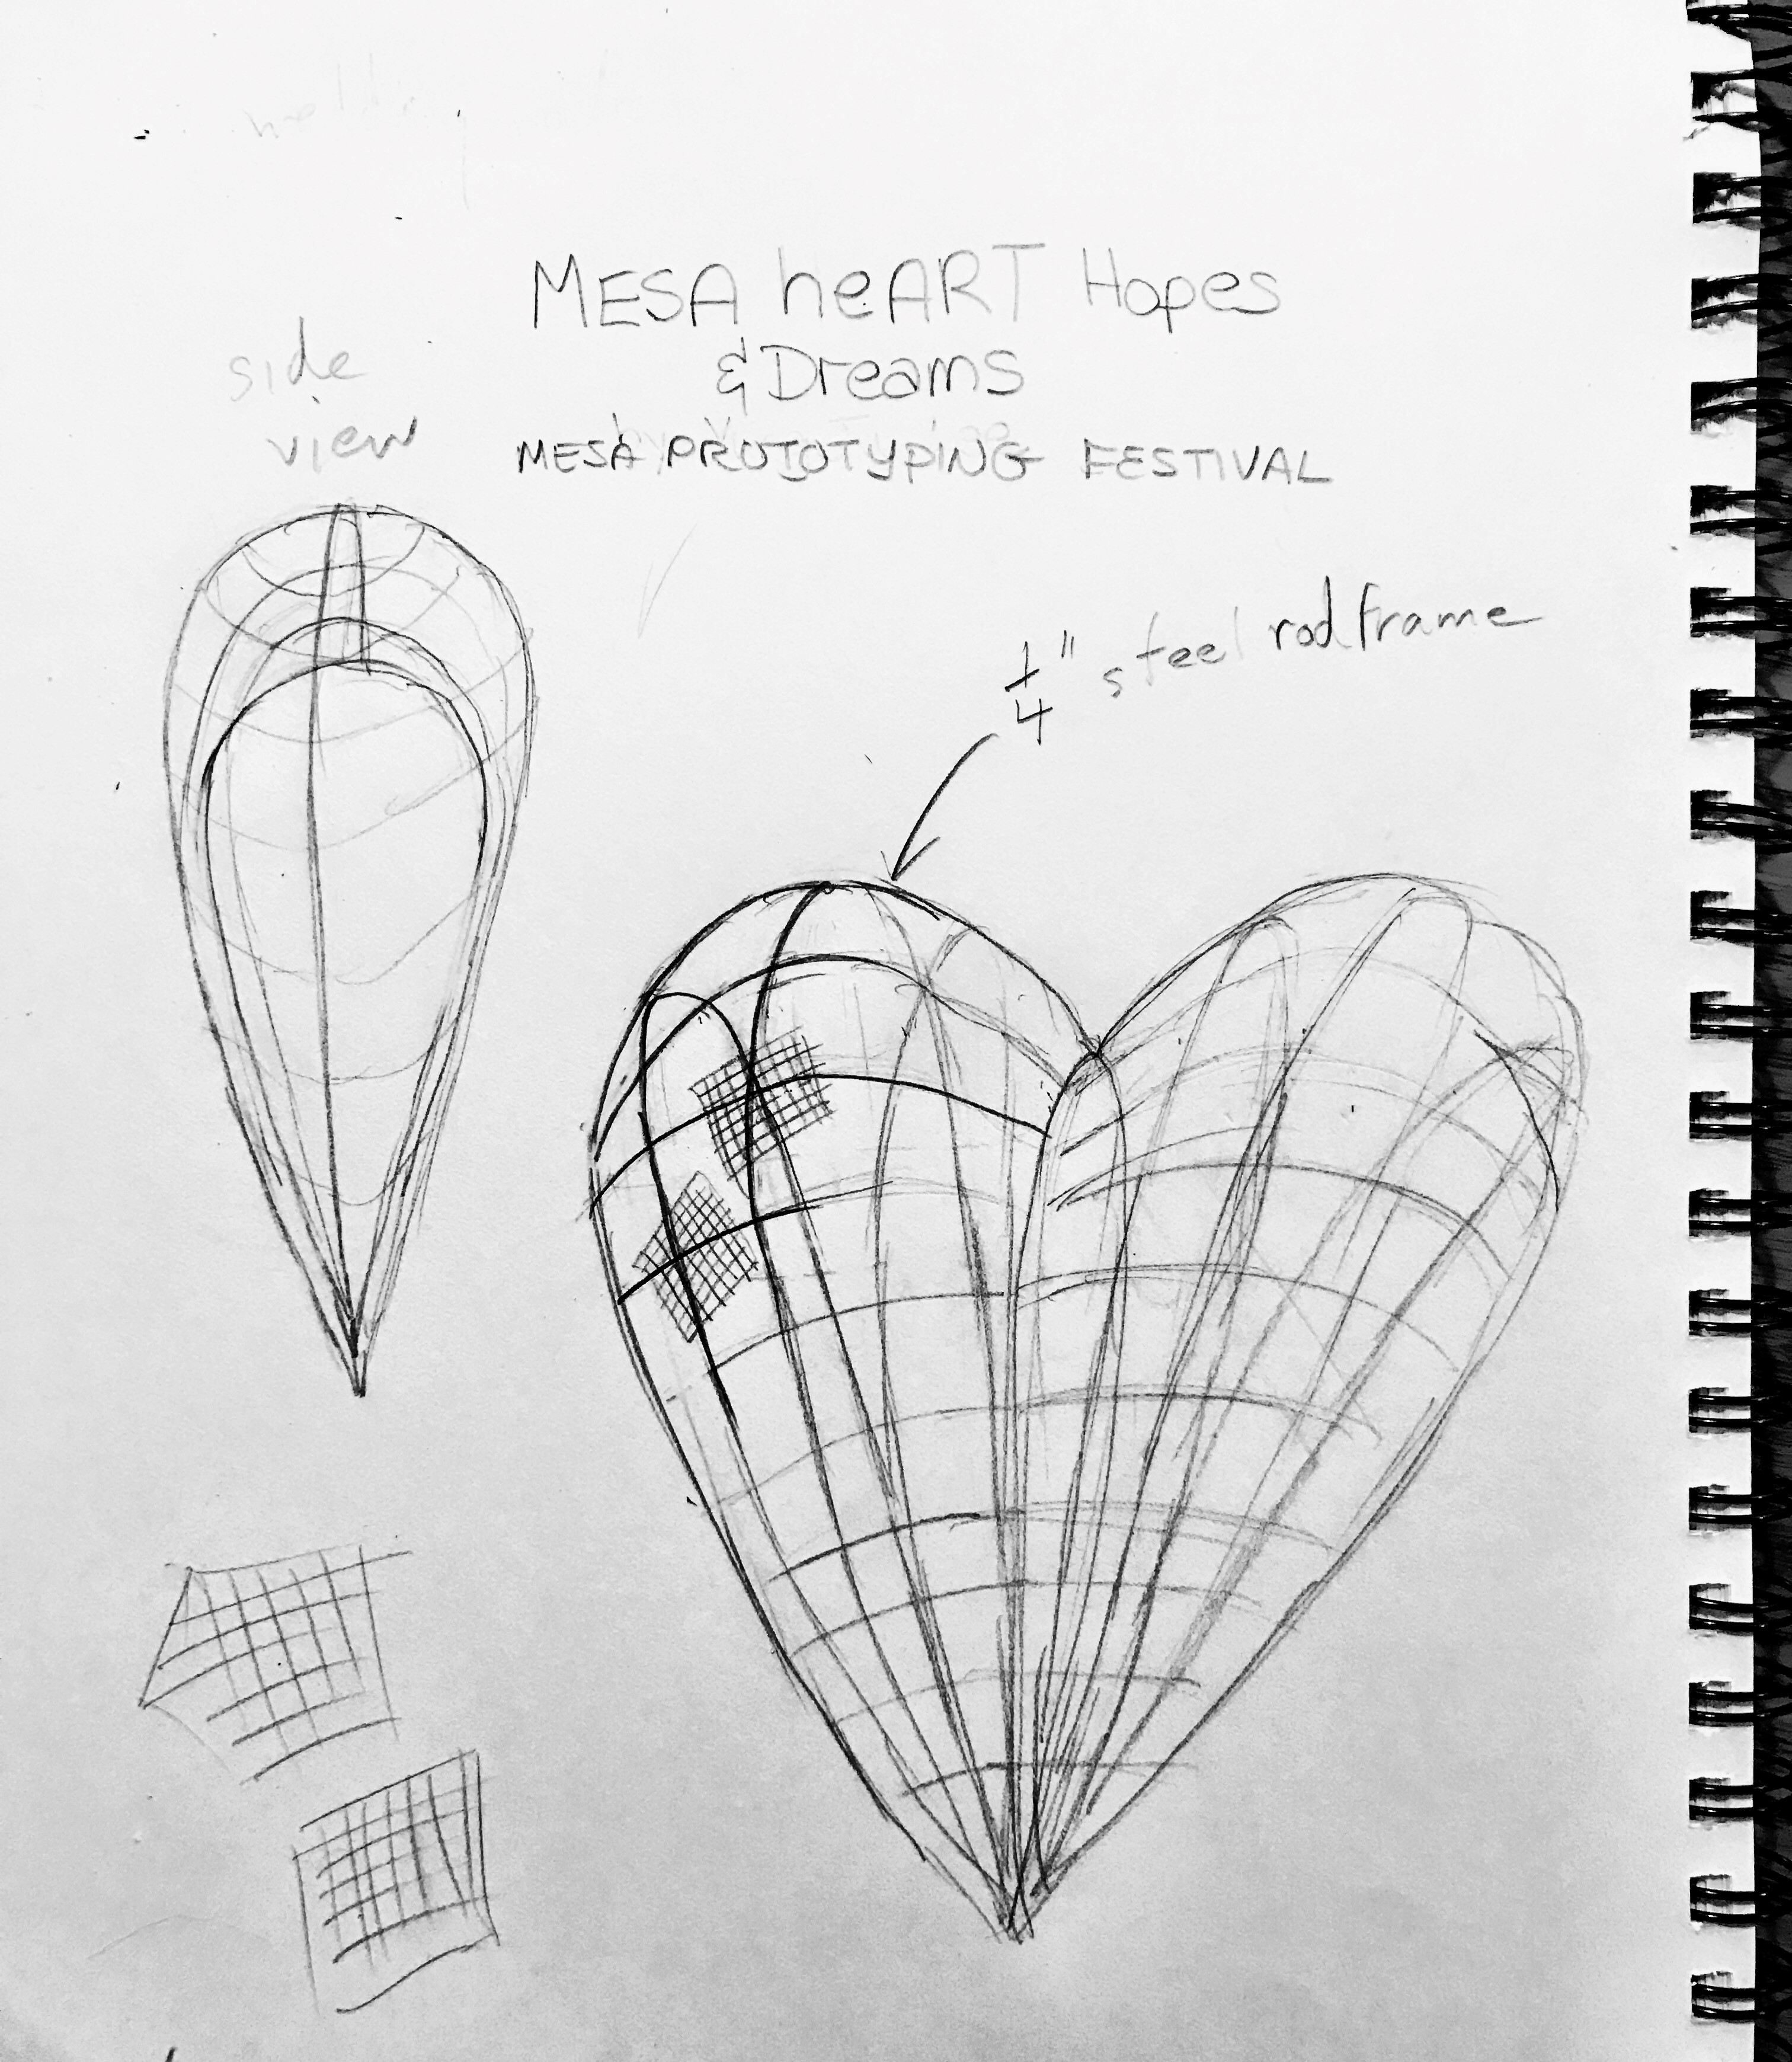 MESA heART Hopes
& Dreams
MESA PROTOTYPING FESTIVAL
side
view
1/4" steel rod frame